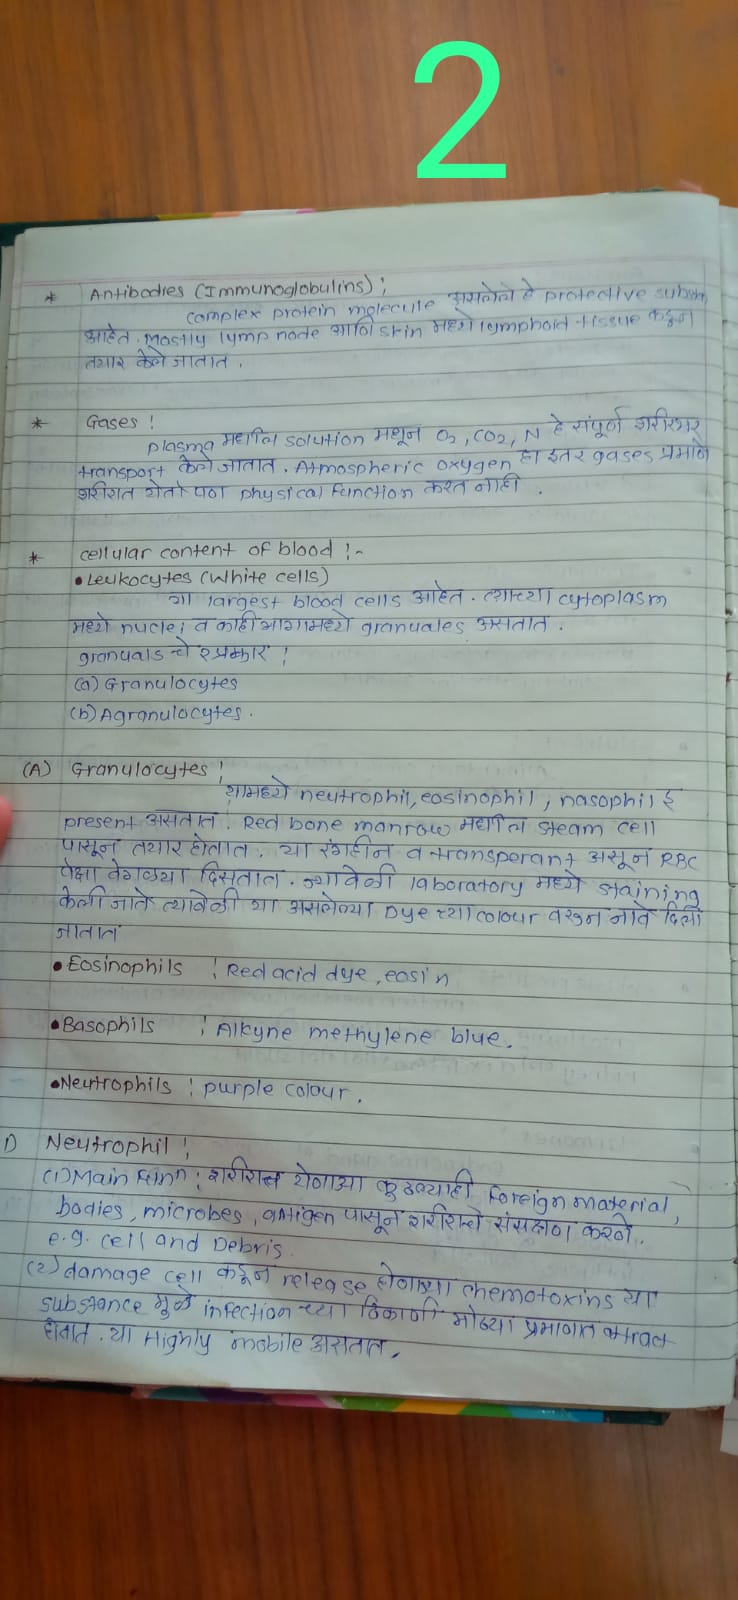 2
* Antibodies (Immunoglobulins) ;
complex protein molecule असलेले हे protective subs
आहेत. Mostly lymp node आणि skin मध्ये lymphoid tissue कडून
तयार केले जातात .
* Gases !
plasma मधील solution मधून O2, CO2, N हे संपूर्ण शरीरभर
transport केले जातात . Atmospheric oxygen हा इतर gases प्रमाणे
शरीरात येतो पण physical function करत नाही .
* cellular content of blood !~
• Leukocytes (White cells)
या largest blood cells आहेत . त्याच्या cytoplasm
मध्ये nuclei व काही भागामध्ये granuales असतात .
granuals चे २ प्रकार !
(a) Granulocytes
(b) Agranulocytes .
(A) Granulocytes !
यामध्ये neutrophil, eosinophil , nasophil ई
present असतात . Red bone manrow मधील steam cell
पासून तयार होतात . या रंगहीन व transperant असून RBC
पेक्षा वेगळ्या दिसतात . ज्यावेळी laboratory मध्ये staining
केली जाते त्यावेळी या असलेल्या Dye च्या colour वरून नावे दिली
जातात
• Eosinophils ! Red acid dye , eosin
• Basophils ! Alkyne methylene blue .
• Neutrophils ! purple colour .
1) Neutrophil !
(1) Main : शरीरात येणाऱ्या कुठल्याही Foreign material,
bodies , microbes , antigen पासून शरीराचे संरक्षण करणे.
e.g. cell and Debris .
(2) damage cell कडून release होणाऱ्या chemotoxins या
substance मुळे infection च्या ठिकाणी मोठ्या प्रमाणात
होतात . या Highly mobile असतात .